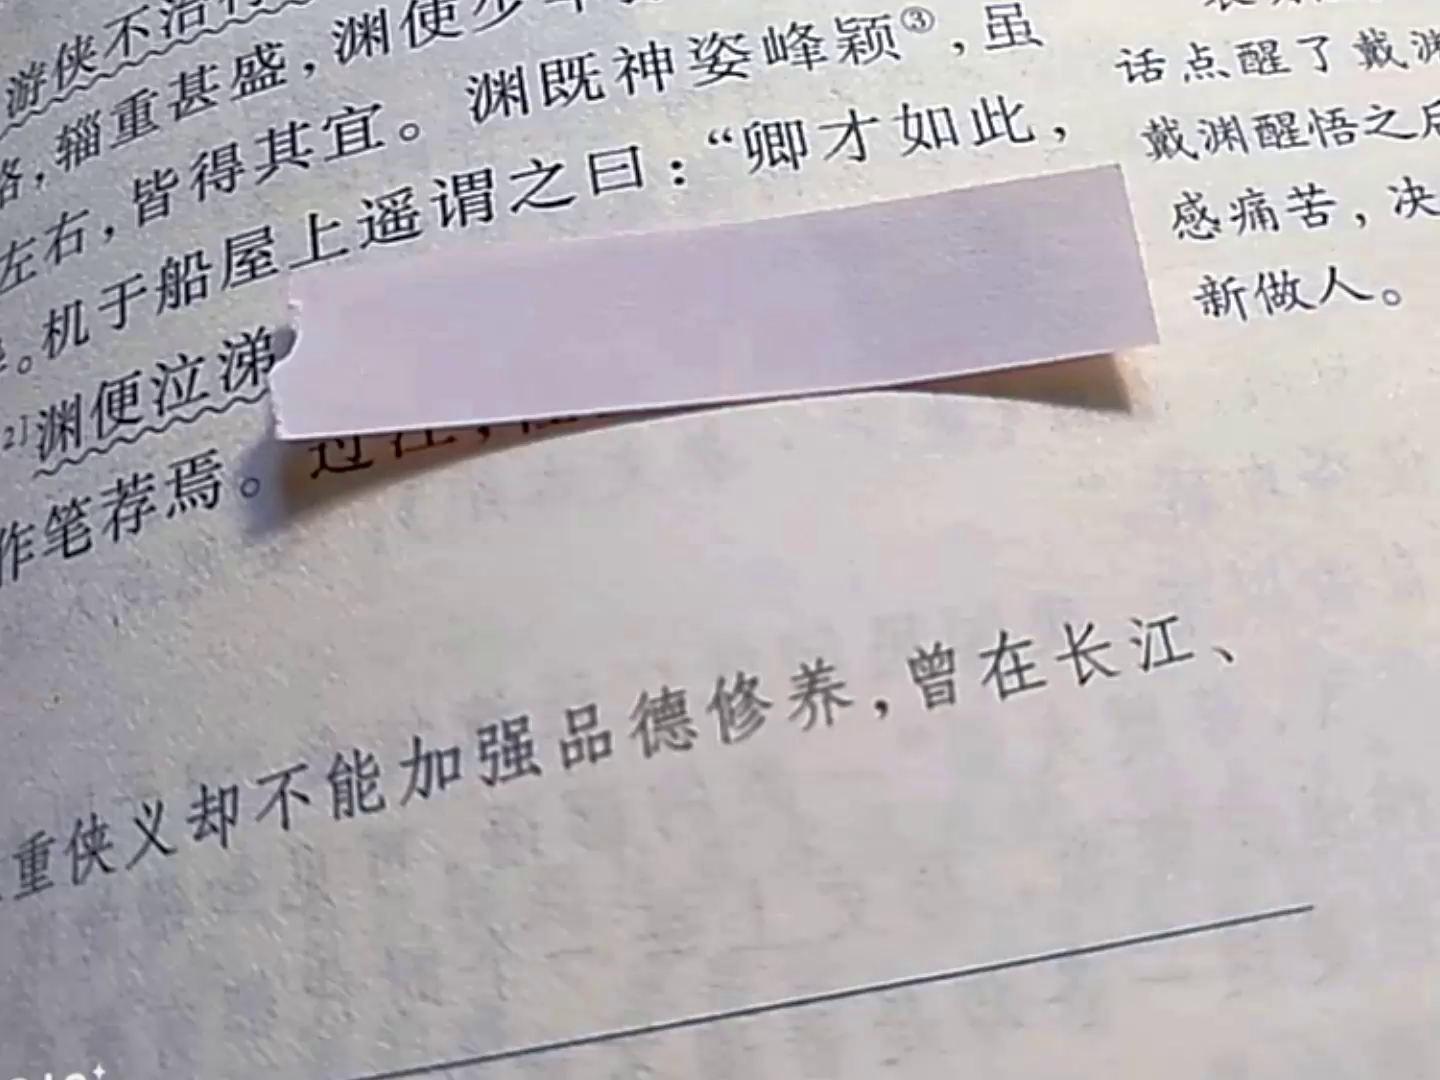 游侠不治行
辎重甚盛，渊使少年
左右，皆得其宜。渊既神姿峰颖③，虽
机于船屋上遥谓之曰：“卿才如此，
[2]渊便泣涕
作笔荐焉。过江，
重侠义却不能加强品德修养，曾在长江、
话点醒了戴渊
戴渊醒悟之后
感痛苦，决
新做人。